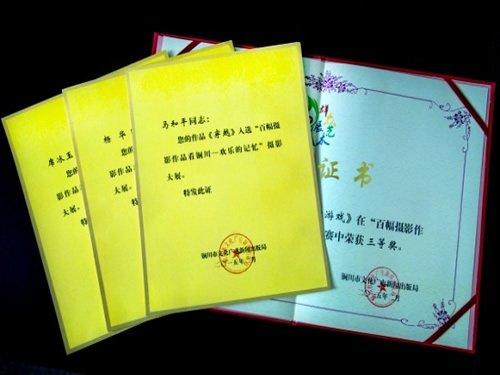 马和平同志：
您的作品《穿越》入选“百幅摄
影作品看铜川—欢乐的记忆”摄影
大展。
特发此证
铜川市文化广电新闻出版局
二〇一五年二月
杨华
您的
影作品
大展。
席冰玉
您
影作
大展。
证书
游戏》在“百幅摄影作
赛中荣获三等奖。
铜川市文化广电新闻出版局